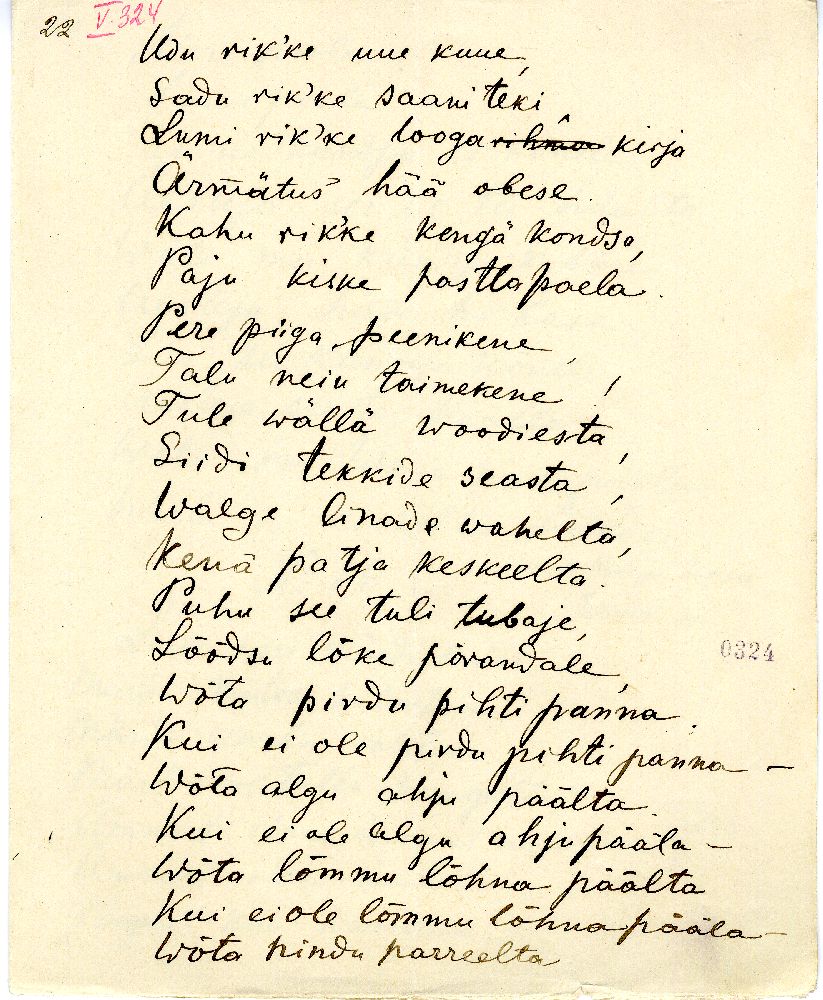 22 V. 324
Udu rik'ke uue kuue,
Sadu rik'ke saani teki,
Lumi rik'ke looga rihma kirja
Ärmätus hää obese.
Kahu rik'ke kengä kondsa,
Paju kiske pastla paela.
Pere piiga peenikene,
Talu neiu taimekene!
Tule wällä woodiesta,
Siidi tekkide seasta,
Walge linade wahelta,
Kenä patja keskeelta.
Puhu see tuli tubaje,
Lõõdsu lõke põrandale,
Wõta pirdu pihti panna.
Kui ei ole pirdu pihti panna –
Wõta algu ahju päälta.
Kui ei ole algu ahju pääla –
Wõta lõmmu lõhna päälta
Kui ei ole lõmmu lõhna pääla –
Wõta pindu parreelta
0324